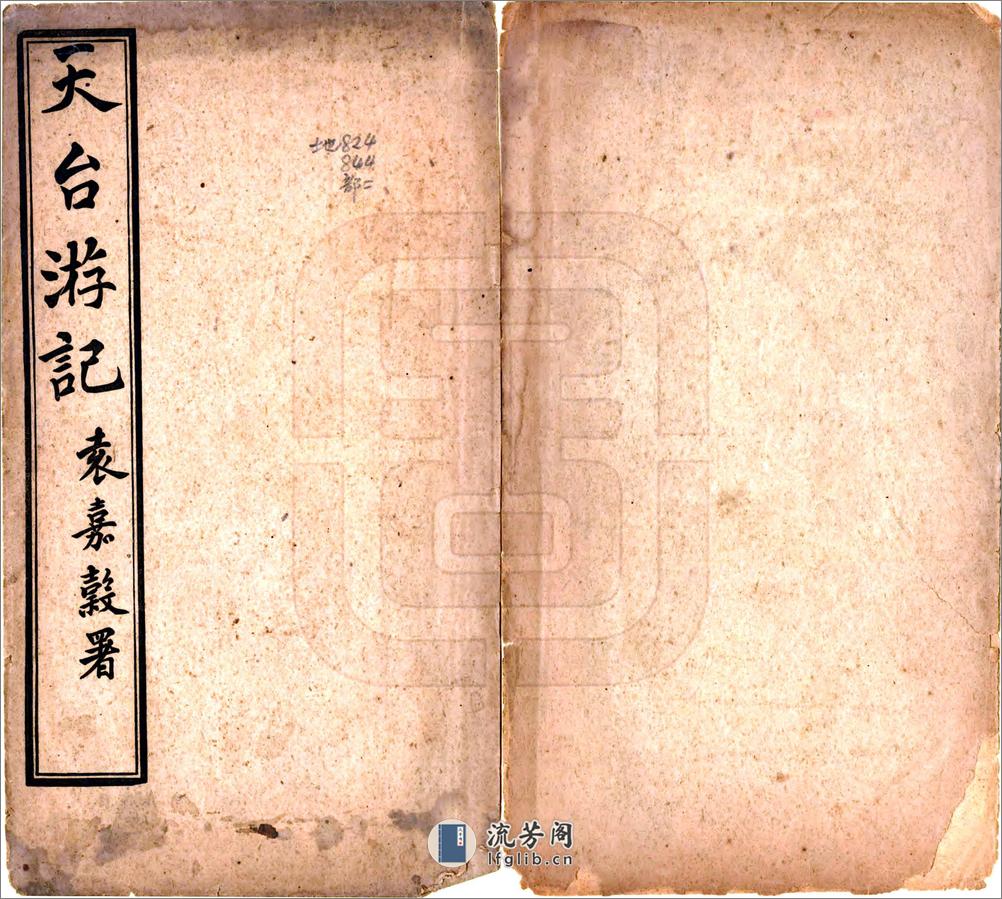 天台游記
袁嘉穀署
地824
844
部二
流芳阁
lfglib.cn